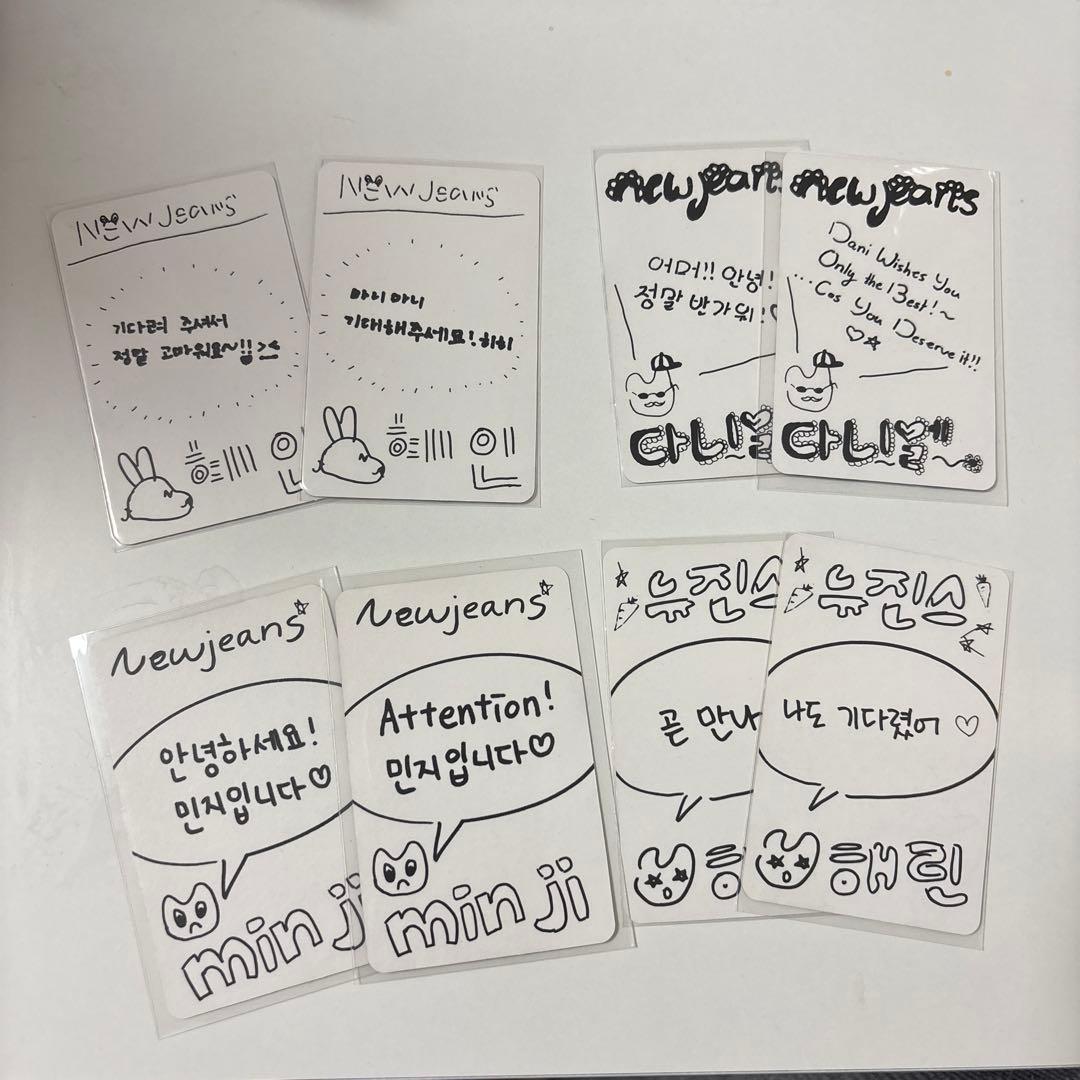 NEWJEANS
기다려 주셔서
정말 고마워요~!!
혜인
NEWJEANS
마니마니
기대해주세요! 히히
혜인
newjeans
어머!! 안녕!
정말 반가워!♡
다니엘
newjeans
Dani Wishes You
Only the Best!~
...Cos You Deserve it!!
♡☆
다니엘~
Newjeans☆
안녕하세요!
민지입니다♡
min ji
Newjeans☆
Attention!
민지입니다♡
min ji
뉴진스
곧 만나
해
뉴진스
나도 기다렸어 ♡
해린